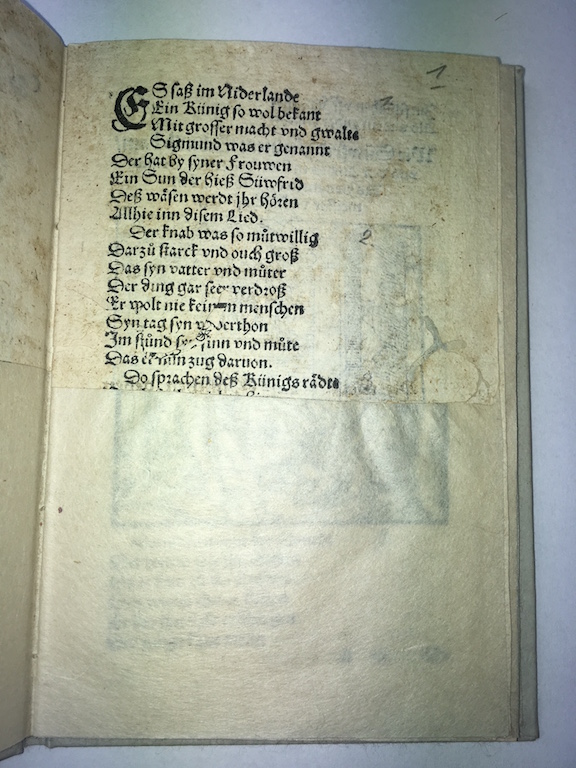 1
ES saß im Niderlande
Ein Künig so wol bekant
Mit grosser macht vnd gwalte
Sigmund was er genannt
Der hat by syner Frouwen
Ein Sun der hieß Süwfrid
Deß wäsen werdt jhr hören
Allhie inn disem Lied.
Der knab was so můtwillig
2
Darzů starck vnd ouch groß
Das syn vatter vnd můter
Der ding gar seer verdroß
Er wolt nie keinen menschen
Syn tag syn
Im stůnd syn sinn vnd můte
Das er nun zug daruon.
Do sprachen deß Künigs rädte